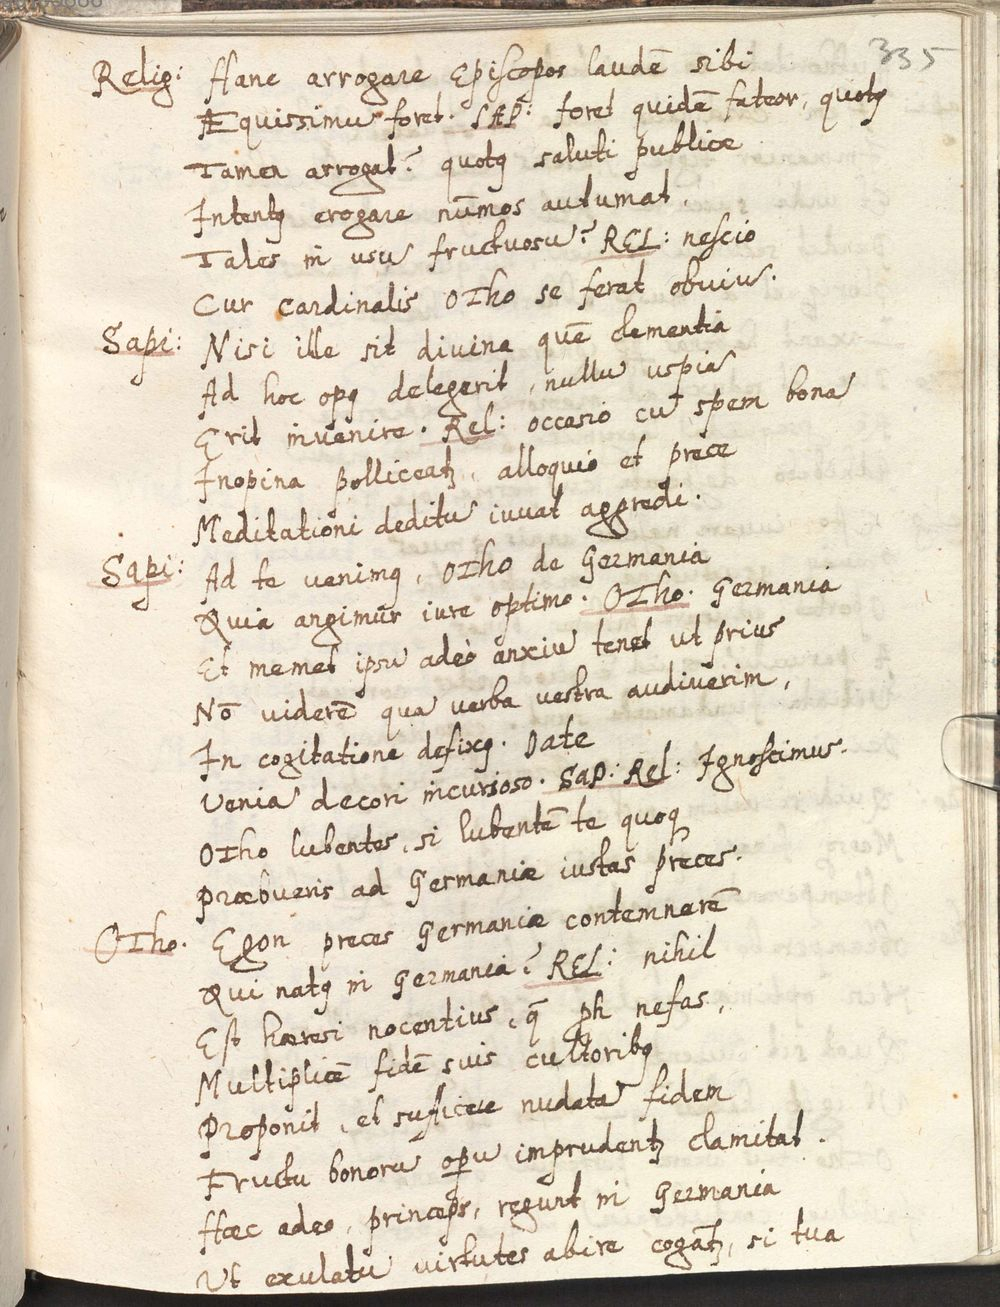 335
Relig: Hanc arrogare Episcopos laudē sibi
Æquissimū foret. SAP: foret quidē fateor, quotꝗ
Tamen arrogat? quotꝗ saluti publicæ
Intentꝗ erogare nūmos autumat
Tales in usu fructuosū? REL: nescio
Cur cardinalis OTho se ferat obuiū.
Sapi: Nisi ille sit divina quē clementia
Ad hoc opꝗ delegerit, nullū uspiā
Erit invenire. Rel: occasio cū spem bonā
Inopina polliceatꝫ, alloquio et prece
Meditationi deditū iuvat aggredi.
Sapi: Ad te venimꝗ, OTho de Germania
Quia angimūr iure optimo. OTho. Germania
Et memet ipsū adeò anxiū tenet ut prius
Nō viderē quā verba vestra audiverim,
In cogitatione defixꝗ. Date
Veniā decori incurioso. SaP: Rel: Ignoscimus.
OTho lubentes, si lubentē te quoꝗ
Præbueris ad Germaniæ iustas preces.
OTho. Egon preces Germaniæ contemnerē
Qui natꝗ in Germania? REL: nihil
Est hæresi nocentius, q̄ ph nefas,
Multiplicē fidē suis cultoribꝗ
Proponit, et sufficere nudatā fidem
Fructu bonorū operū imprudentꝫ clamitat.
Hæc adeo, princeps, regunt in Germania
Ut exulatū virtutes abire cogātꝫ, si tua